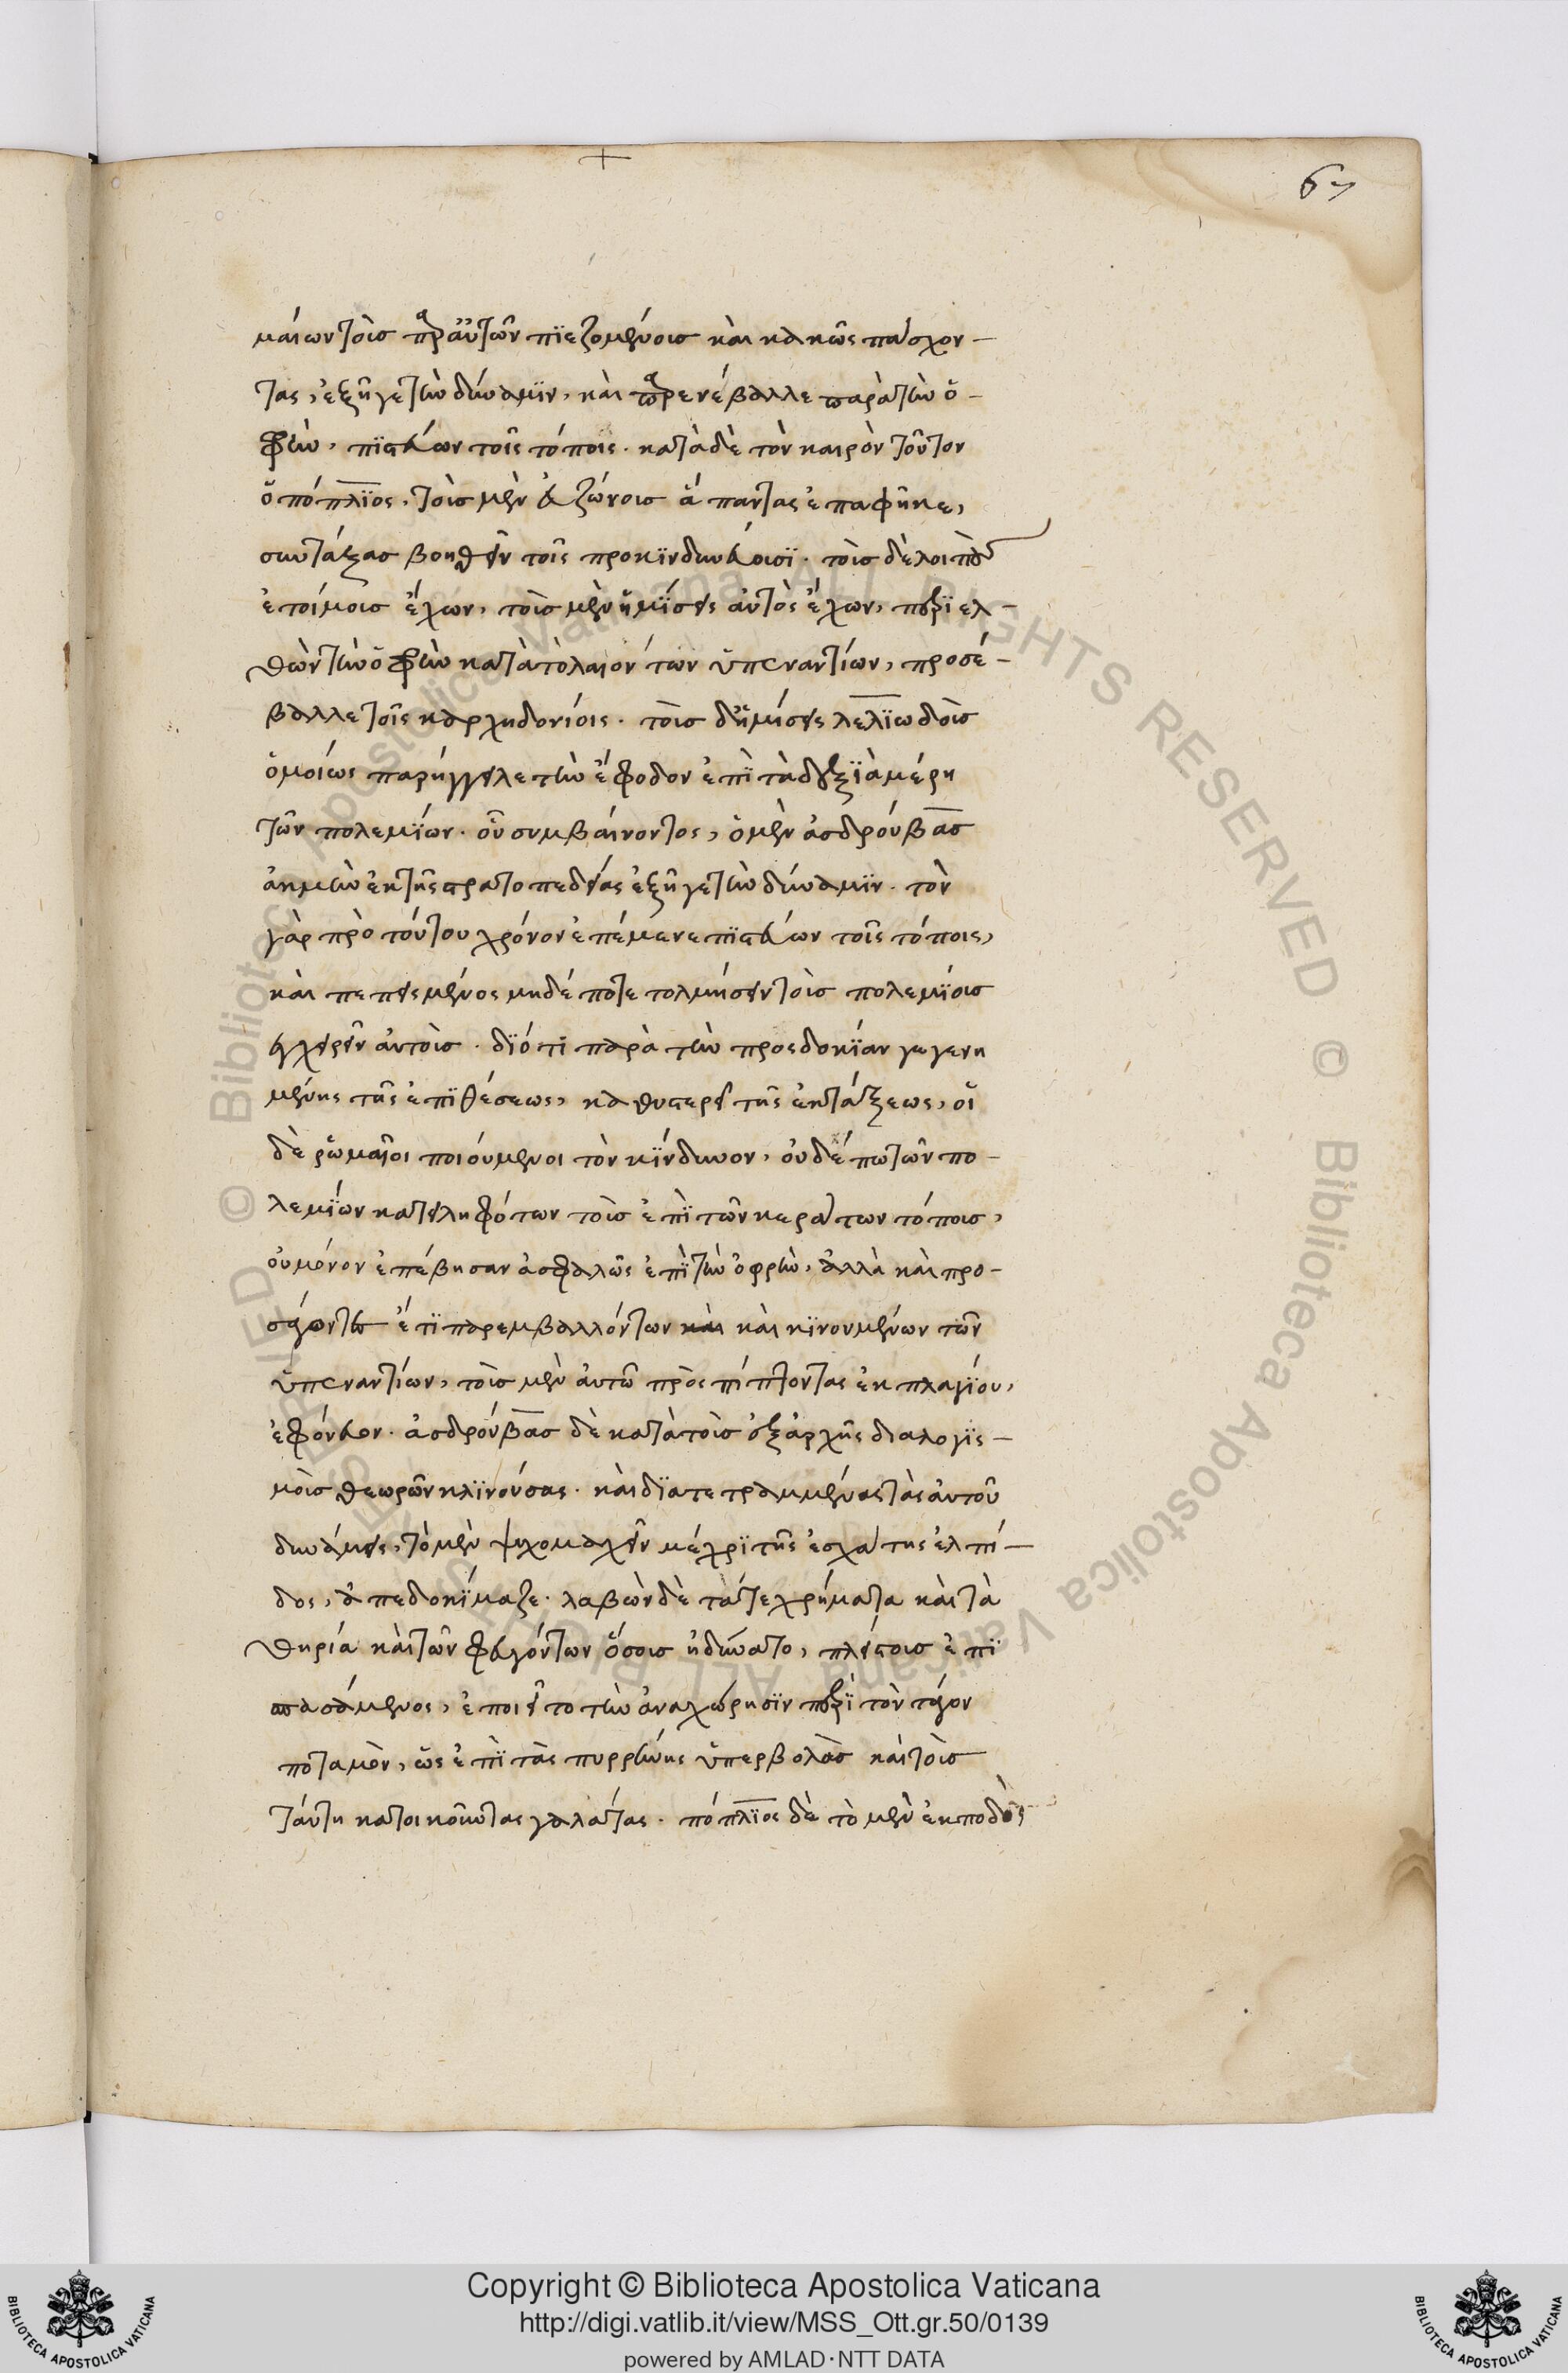 +
67
μαίων τοὺς παρ' αὐτῶν πϊεζομένους καὶ κακῶς πάσχον-
τας, ἐξῆγε τὴν δύναμϊν, καὶ παρενέβαλλε παρὰ τὴν ὀ-
φρὺν, πϊστεύων τοῖς τόποις. κατὰ δὲ τὸν καιρὸν τοῦτον
ὁ πόπλϊος, τοὺς μὲν εὐζώνους ἅπαντας ἐπαφῆκε,
συντάξας βοηθεῖν τοῖς προκϊνδυνεύουσϊ. τοὺς δὲ λοιποὺς
ἑτοίμους ἔχων, τοὺς μὲν ἡμϊσεῖς αὐτὸς ἔχων, περϊελ-
θὼν τὴν ὀφρὺν κατὰ τὸ λαιὸν τῶν ὑπεναντίων, προσέ-
βαλλε τοῖς καρχηδονίοις. τοὺς δ' ἡμίσεις λελϊω δοὺς
ὁμοίως παρήγγειλε τὴν ἔφοδον ἐπϊ τὰ δεξϊὰ μέρη
τῶν πολεμϊων. οὗ συμβαίνοντος, ὁ μὲν ἀσδρούβας
ἀκμὴν ἐκ τῆς στρατοπεδείας ἐξῆγε τὴν δύναμϊν. τὸν
γὰρ πρὸ τούτου χρόνον ἐπέμενε πϊστεύων τοῖς τόποις,
καὶ πεπεισμένος μηδέποτε τολμήσειν τοὺς πολεμϊους
ἐγχειρεῖν αὐτοῖς. δϊό τι παρὰ τὴν προσδοκϊαν γεγενη
μένης τῆς ἐπϊθέσεως, καθυστέρει τῆς ἐκτάξεως, οἱ
δὲ ῥωμαῖοι ποιούμενοι τὸν κϊνδυνον, οὐδέπω τῶν πο-
λεμϊων κατειληφότων τοὺς ἐπϊ τῶν κεράτων τόπους,
οὐ μόνον ἐπέβησαν ἀσφαλῶς ἐπϊ τὴν ὀφρὺν, ἀλλὰ καὶ προ-
σάγοντες ἔτϊ παρεμβαλλόντων καὶ καὶ κϊνουμένων τῶν
ὑπεναντίων, τοὺς μὲν αὐτῶ προσπίπτοντας ἐκ πλαγϊου,
ἐφόνευον. ἀσδρούβας δὲ κατὰ τοὺς ἐξ ἀρχῆς διαλογϊς-
μοὺς θεωρῶν κλϊνούσας. καὶ δϊατετραμμένας τὰς αὐτοῦ
δυνάμεις, τὸ μὲν ψυχομαχεῖν μέχρϊ τῆς ἐσχάτης ἐλπί-
δος, ἀπεδοκϊμαζε. λαβὼν δὲ τά τε χρήματα καὶ τὰ
θηρία καὶ τῶν φευγόντων ὅσους ἠδύνατο, πλείστους ἐπϊ
σπασάμενος, ἐποιεῖτο τὴν ἀναχώρησϊν περϊ τὸν τάγον
ποταμὸν, ὡς ἐπϊ τὰς πυρρήνης ὑπερβολὰς καὶ τοὺς
ταύτη κατοικοῦντας γαλάτας. πόπλϊος δὲ τὸ μὲν ἐκ ποδὸς
Copyright © Biblioteca Apostolica Vaticana
http://digi.vatlib.it/view/MSS_Ott.gr.50/0139
powered by AMLAD·NTT DATA